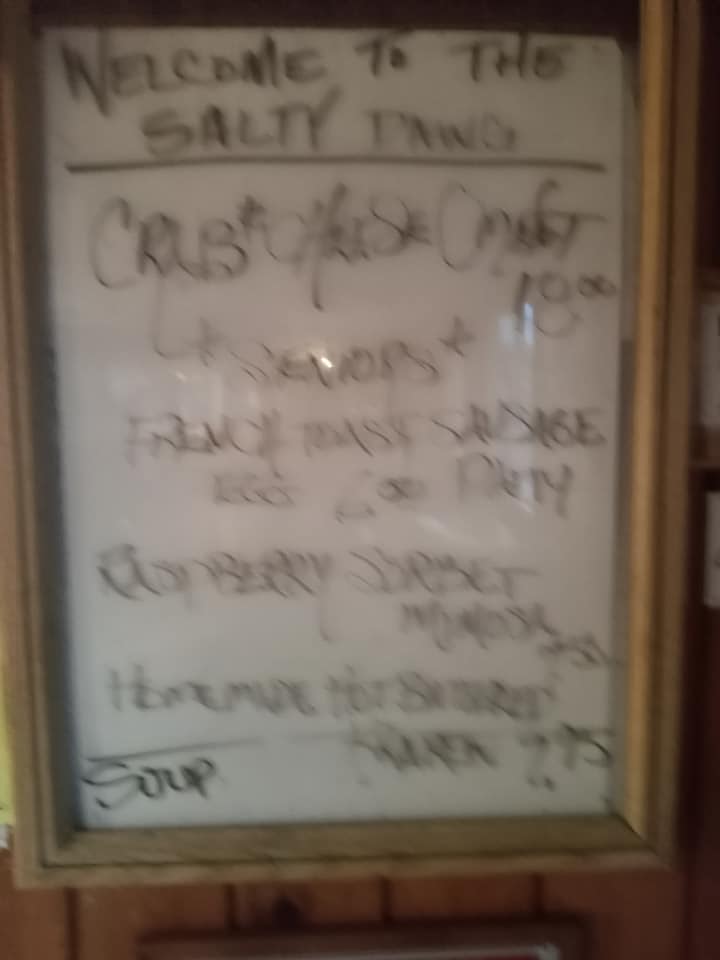 WELCOME TO THE
SALTY DAWG
CRAB & CHEESE OMELET
18.00
* SENIORS *
FRENCH TOAST SAUSAGE
EGGS PATTY
RASPBERRY SORBET
MIMOSA
HOMEMADE HOT BUTTERED
KRAKEN 9.95
SOUP